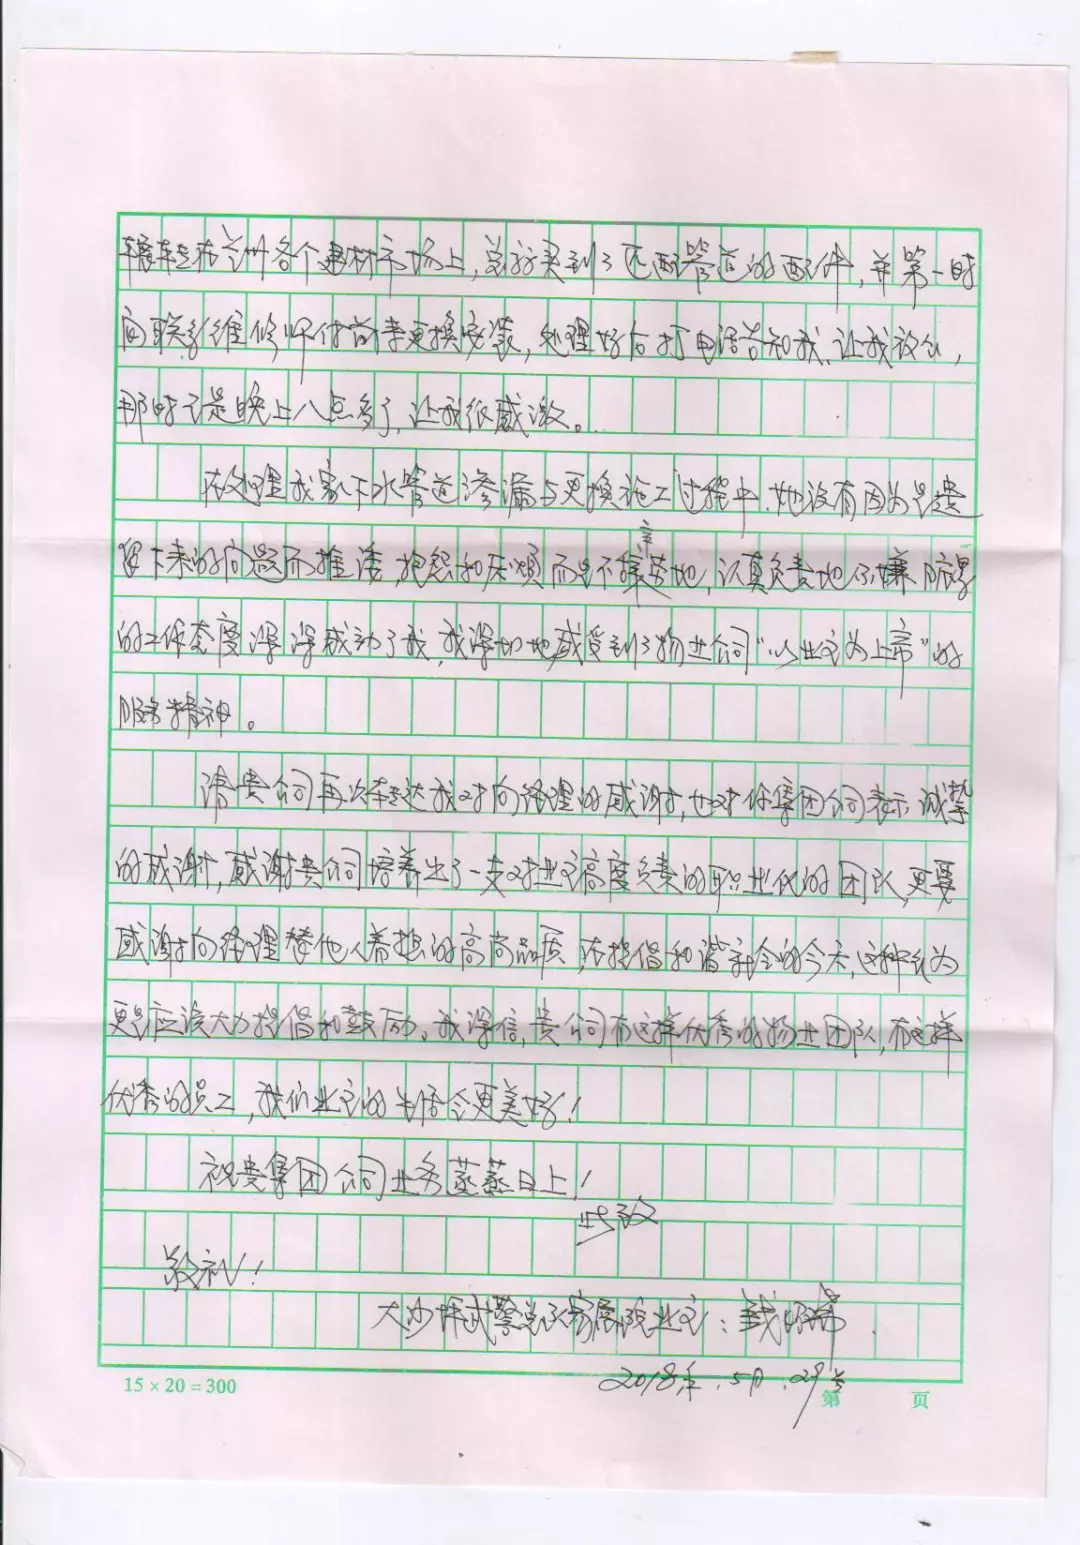 辗转在兰州各个建材市场上，总算买到了匹配管道的配件，并第一时
间联系维修师付前来更换安装，处理好后打电话告知我，让我放心，
那时已是晚上八点多了，让我很感激。
在处理我家下水管道渗漏与更换施工过程中，她没有因为是遗
留下来的问题而推诿抱怨和厌烦而是不辞辛劳地，认真负责地不嫌脏累
的工作态度深深感动了我，我深切地感受到了物业公司“以业主为上帝”的
服务精神。
请贵公司再次转达我对向经理的感谢，也对你集团公司表示诚挚
的感谢，感谢贵公司培养出了一支对业主高度负责的职业化的团队，更要
感谢向经理替他人着想的高尚品质，在提倡和谐社会的今天，这种行为
更是应该大力提倡和鼓励。我深信，贵公司有这样优秀的物业团队，有这样
优秀的员工，我们业主的生活会更美好！
祝贵集团公司业务蒸蒸日上！
此致
敬礼！
大沙坪武警总队家属院业主：钱
2018年.5月.29号
15×20=300
第 页